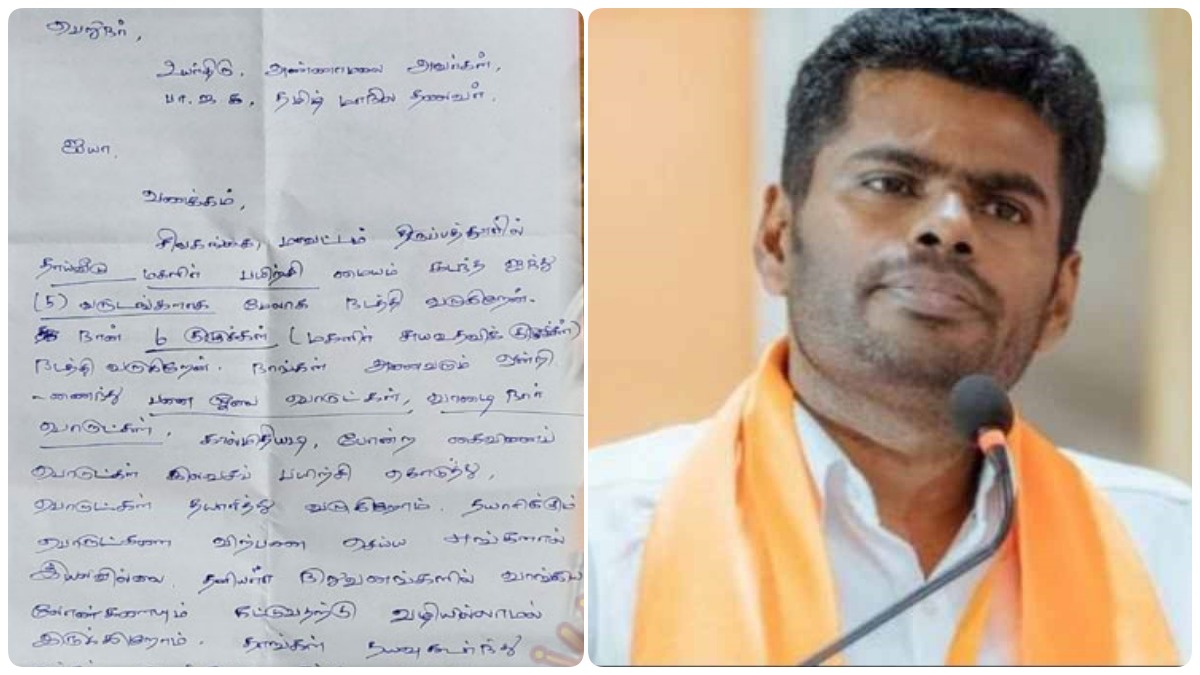 பெறுநர்,
உயர்திரு. அண்ணாமலை அவர்கள்,
பா.ஜ.க, தமிழ் மாநில தலைவர்.
ஐயா.
வணக்கம்,
சிவகங்கை, மாவட்டம் திருப்பத்தூரில்
தாய்வீடு மகளிர் பயிற்சி மையம் கடந்த ஐந்து
(5) வருடங்களாக மேலாக நடத்தி வருகிறேன்.
நான் 6 குழுக்கள் (மகளிர் சுயஉதவிக் குழுக்கள்)
நடத்தி வருகிறேன். நாங்கள் அனைவரும் ஒன்றி
-ணைந்து பனை ஓலை பொருட்கள், வாழை நார்
பொருட்கள், கால்மிதியடி, போன்ற கைவினைப்
பொருட்கள் இலவசப் பயிற்சி கொடுத்து,
பொருட்கள் தயாரித்து வருகிறோம். தயாரிக்கும்
பொருட்களை விற்பனை செய்ய எங்களால்
இயலவில்லை. தனியார் நிறுவனங்களில் வாங்கிய
லோன்களையும் கட்டுவதற்கு வழியில்லாமல்
இருக்கிறோம். தாங்கள் தயவுகூர்ந்து